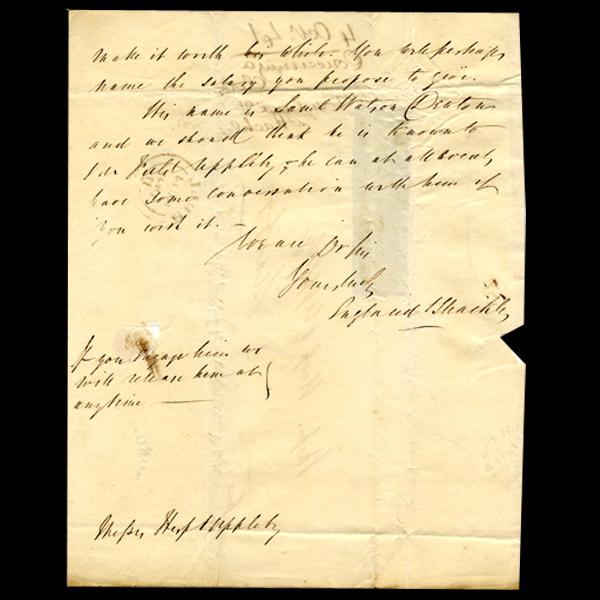 make it worth his while. You will perhaps
name the salary you propose to give.
His name is Saml Watson Deaton
and we should think he is known to
your Appleby, he can at all events
have some conversation with him if
you wish it. —
We are Dr Sir
Yours truly
England & Shackles
If you engage him we
will release him at
anytime —
Messrs Appleby